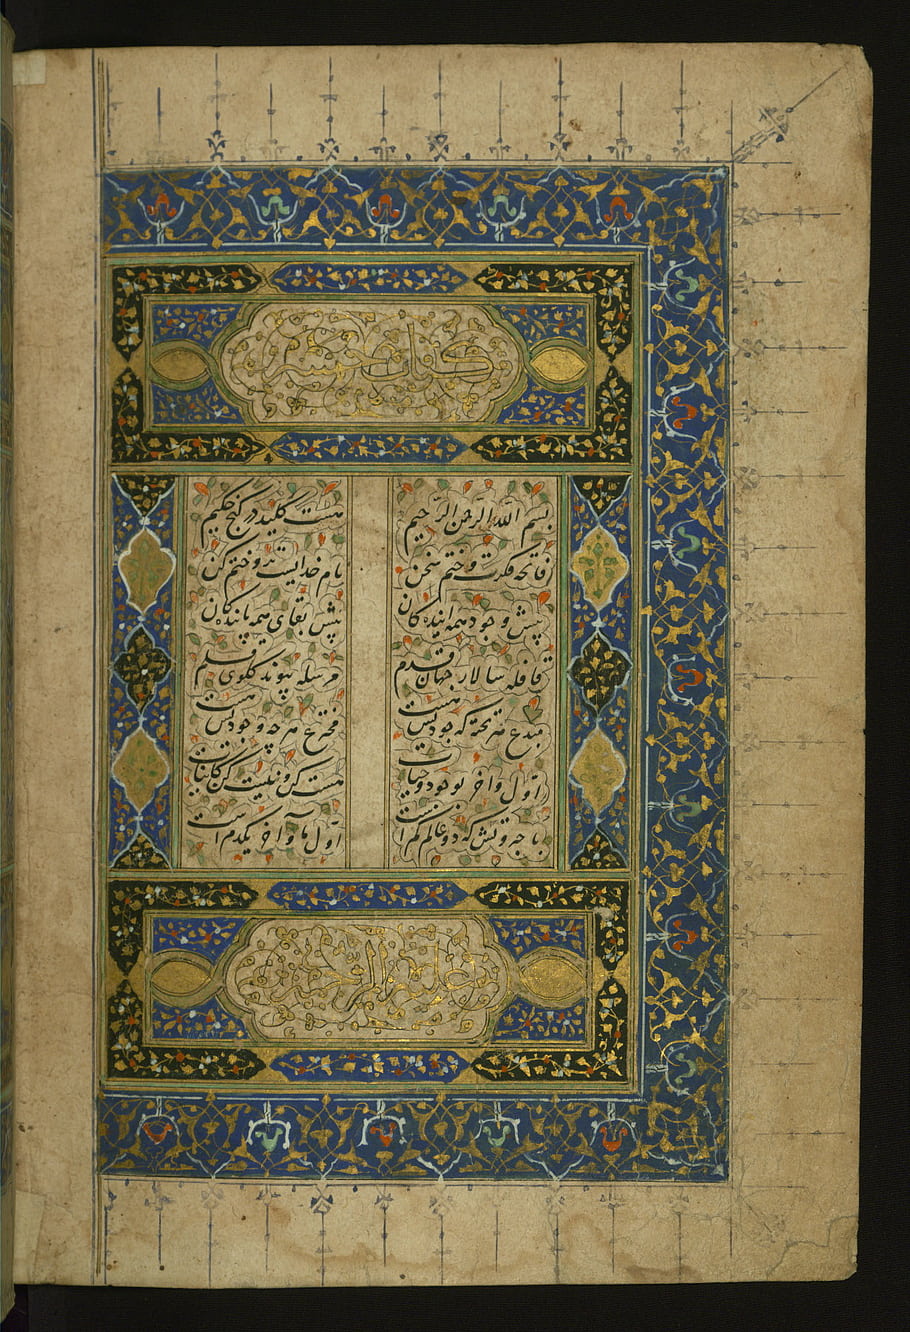 کتاب خمسه
بسم الله الرحمن الرحیم هست کلید در گنج حکیم
فاتحه فکرت و ختم سخن نام خدایست برو ختم کن
پیش وجود همه آیندگان پیش بقای همه پایندگان
قافله سالار جهان قدم مرسله پیوند گلوی قلم
مبدع هر چشمه که جودیش هست مخترع هر چه وجودیش هست
اول و آخر بوجود و حیات هست کن و نیست کن کاینات
با جبروتش که دو عالم کم است اول ما و آخر ما یکدم است